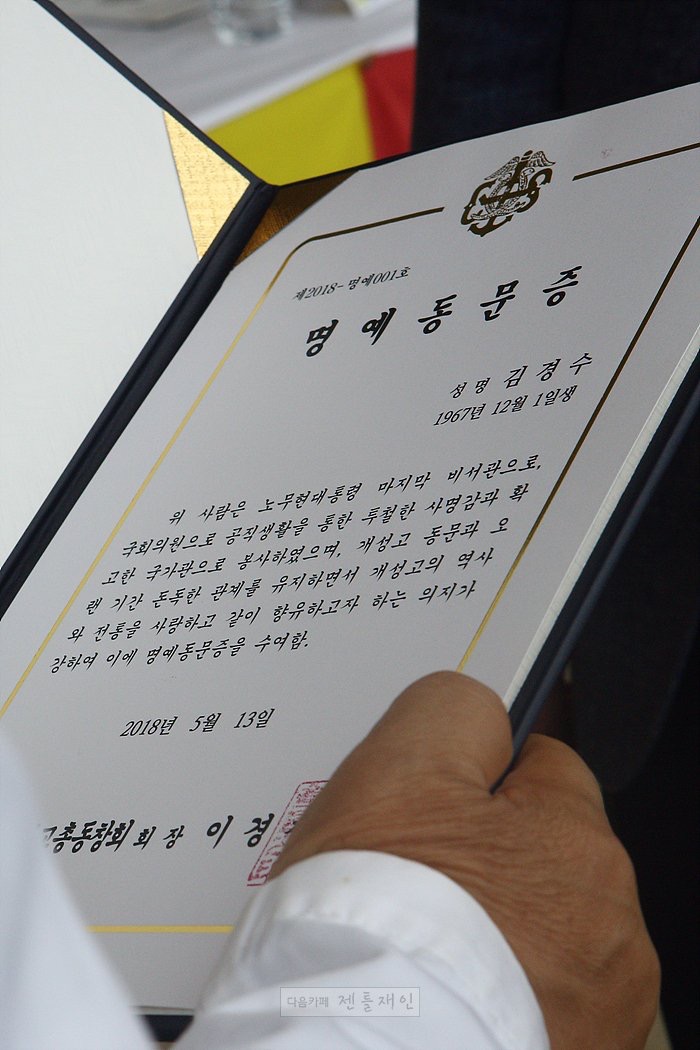 제2018-명예001호
명예동문증
성명 김경수
1967년 12월 1일생
위 사람은 노무현대통령 마지막 비서관으로,
국회의원으로 공직생활을 통한 투철한 사명감과 확
고한 국가관으로 봉사하였으며, 개성고 동문과 오
랜 기간 돈독한 관계를 유지하면서 개성고의 역사
와 전통을 사랑하고 같이 향유하고자 하는 의지가
강하여 이에 명예동문증을 수여함.
2018년 5월 13일
총동창회 회장 이경
다음카페 젠틀재인